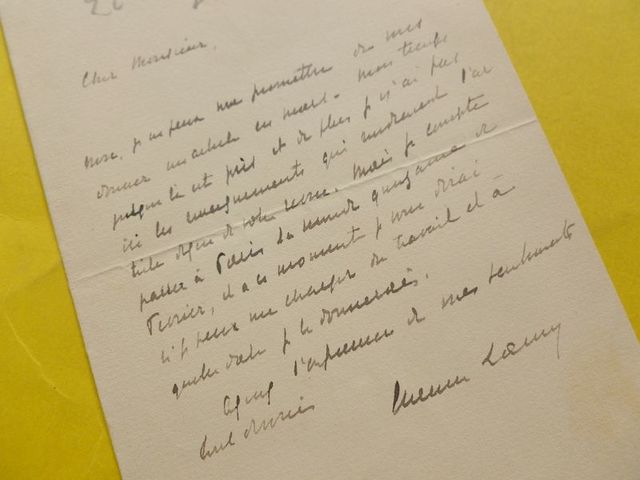 Cher Monsieur,
Non, je ne peux me permettre de vous
donner un article en mars - mon temps
jusque là est pris et de plus je n'ai pas
ici les renseignements qui rendraient l'ar
ticle digne de votre revue. Mais je compte
passer à Paris la seconde quinzaine de
Février, et à ce moment je vous dirai
si je peux me charger du travail et à
quelle date je le donnerais.
Agréez l'expression de mes sentiments